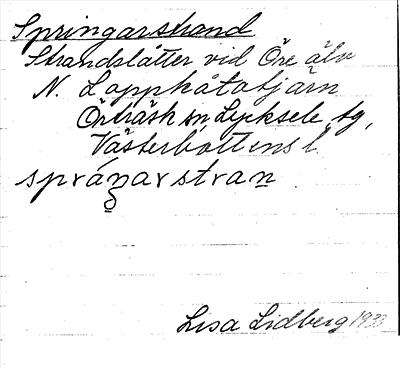 Springarstrand
Strandslåtter vid Öre älv
N. Lappkåtatjärn
Örträsk sn, Lycksele tg,
Västerbottens l.
språŋarstran
Lisa Lidberg 1933